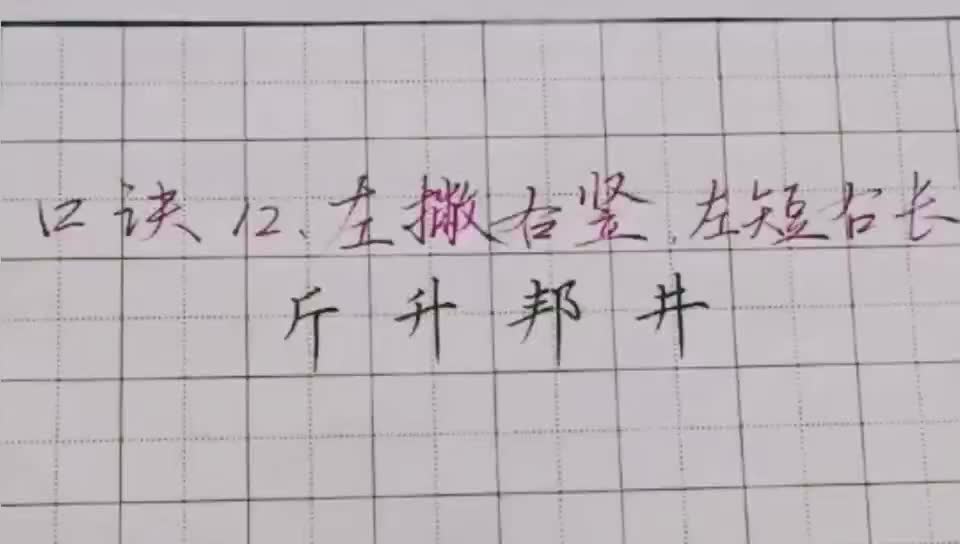 口诀12、左撇右竖,左短右长
斤升邦井